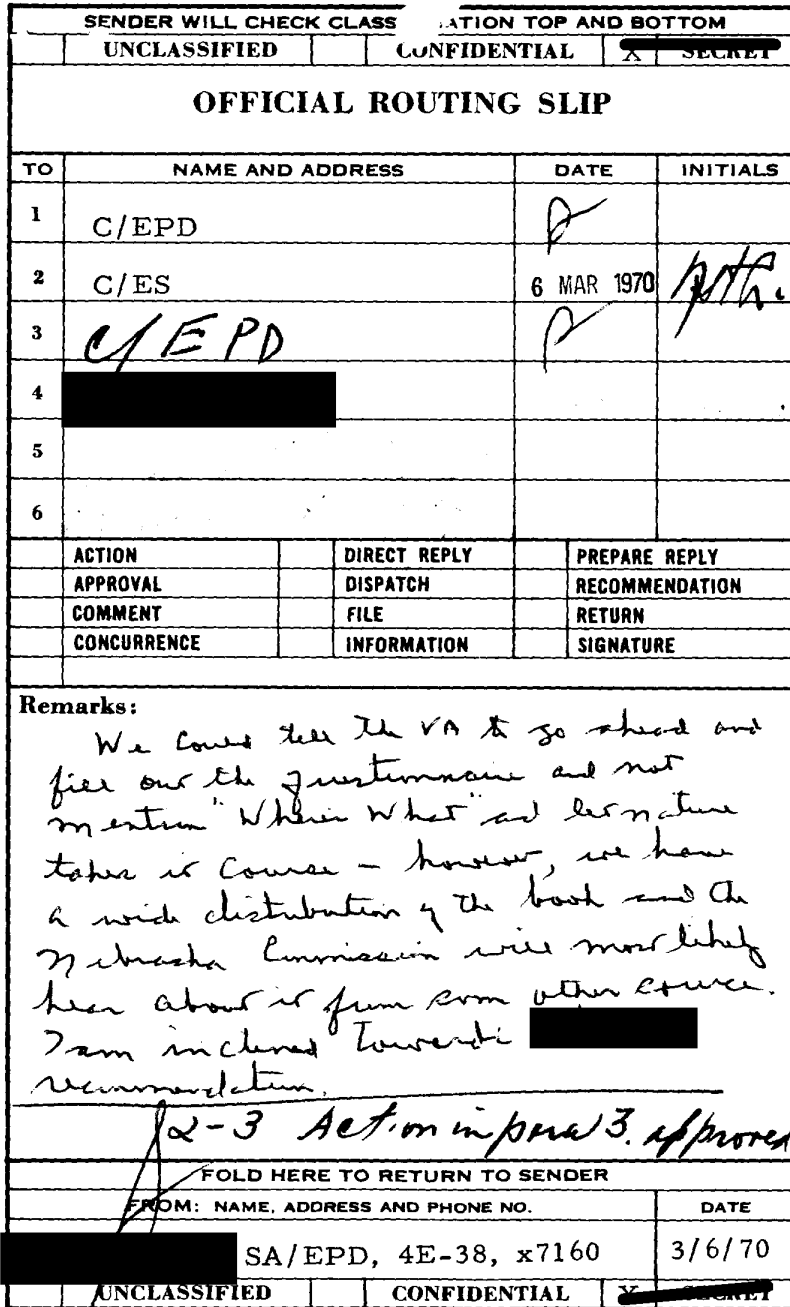 SENDER WILL CHECK CLASS ATION TOP AND BOTTOM
UNCLASSIFIED CONFIDENTIAL X SECRET
OFFICIAL ROUTING SLIP
TO NAME AND ADDRESS DATE INITIALS
1 C/EPD
2 C/ES 6 MAR 1970
3 C/EPD
4
5
6
ACTION DIRECT REPLY PREPARE REPLY
APPROVAL DISPATCH RECOMMENDATION
COMMENT FILE RETURN
CONCURRENCE INFORMATION SIGNATURE
Remarks:
We could tell the VA to go ahead and
fill out the questionnaire and not
mention "Where What" and let nature
takes it course - however, we have
a wide distribution of the book and the
Nebraska Commission will most likely
hear about it from some other source.
I am inclined towards
recommendation.
2-3 Action in para 3. approved
FOLD HERE TO RETURN TO SENDER
FROM: NAME, ADDRESS AND PHONE NO. DATE
SA/EPD, 4E-38, x7160 3/6/70
UNCLASSIFIED CONFIDENTIAL X SECRET